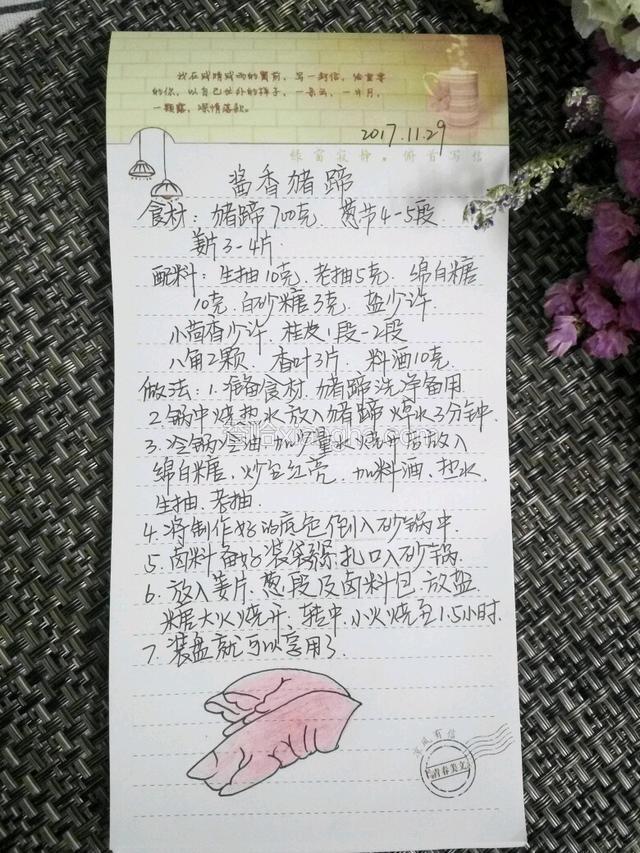 我在或晴或雨的窗前，写一封信，给重要
的你，以自己世外的样子，一朵云，一片月，
一颗露，深情落款。
2017.11.29
绿窗寂静。俯首写信
酱香猪蹄
食材：猪蹄700克 葱节4-5段
姜片3-4片
配料：生抽10克 老抽5克 绵白糖
10克 白砂糖3克 盐少许
小茴香少许 桂皮1段-2段
八角2颗 香叶3片 料酒10克
做法：1.准备食材 猪蹄洗净备用
2.锅中烧热水放入猪蹄焯水3分钟
3.冷锅冷油 加少量水烧开后放入
绵白糖、炒至红亮 加料酒、热水
生抽、老抽
4.将制作好的底色倒入砂锅中
5.卤料备好装袋 扎口入砂锅
6.放入姜片、葱段及卤料包 放盐
糖大火烧开、转中、小火烧至1.5小时
7.装盘就可以享用了
有信
青春美文